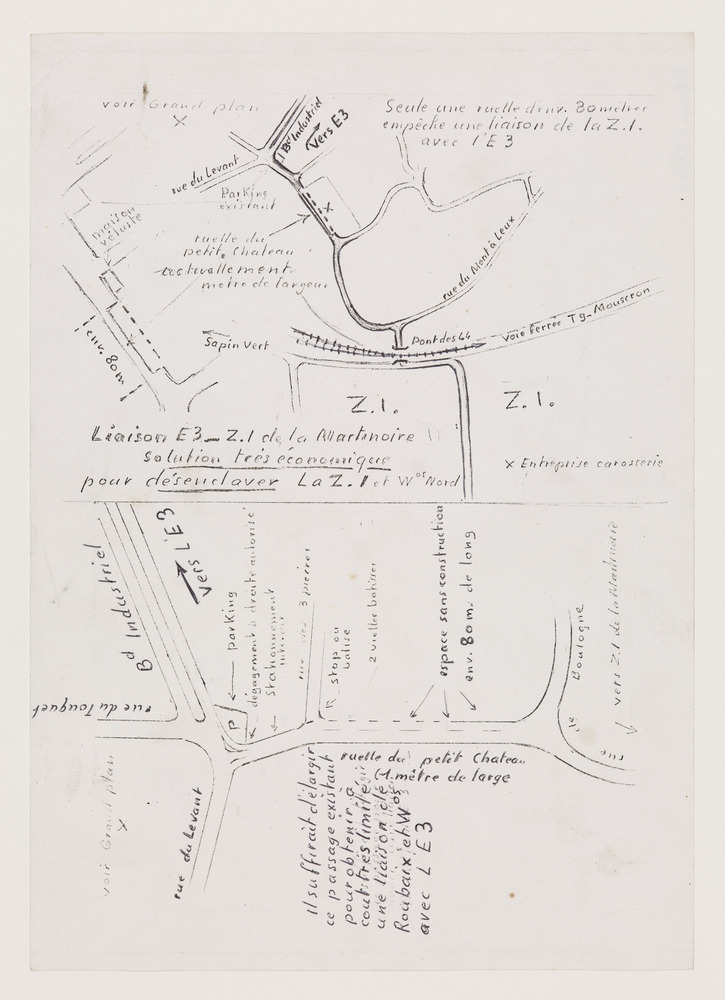 voir Grand plan
X
Seule une ruelle d'env. 80 mètres
empêche une liaison de la Z.I.
avec l'E3
Bd Industriel
Vers E3
rue du Levant
Parking
existant
X
maison
vétuste
ruelle du
petit Chateau
actuellement
mètre de largeur
rue du Mont à Leux
env. 80m
Sapin Vert
Pont des 44
Voie ferrée Tg-Mouscron
Z.I.
Z.I.
Liaison E3_Z.I de la Martinoire
Solution trés économique
pour désenclaver La Z.I et Wos Nord
X Entreprise carosserie
Bd Industriel
vers L'E3
parking
dégagement à droite autorisé
Stationnement
rue des 3 pierres
stop ou
balise
2 vielles batisses
espace sans construction
env. 80m. de long
rue de Boulogne
vers Z.I de la Martinoire
rue du Touquet
P
ruelle du petit Chateau
(1 mêtre de large
voir Grand plan
X
rue du Levant
il suffirait d'élargir
ce passage existant
pour obtenir à
cout trés limité
une liaison de
Roubaix et Wos
avec L'E3